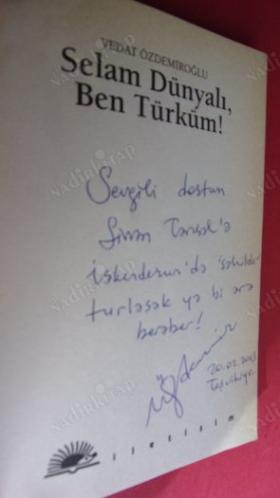 VEDAT ÖZDEMİROĞLU
Selam Dünyalı,
Ben Türküm!
Sevgili dostum
'e
İskenderun'da sahilde
turlasak ya bi ara
beraber!
20.02.2013
iletişim
nadirkitap